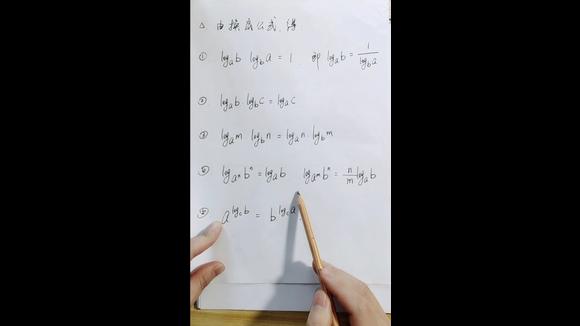 △ 由换底公式,得
① log_a b log_b a = 1 即 log_a b = 1/log_b a
② log_a b log_b c = log_a c
③ log_a m log_b n = log_a n log_b m
④ log_{a^n} b^n = log_a b log_{a^m} b^n = n/m log_a b
⑤ a^{log_c b} = b^{log_c a}